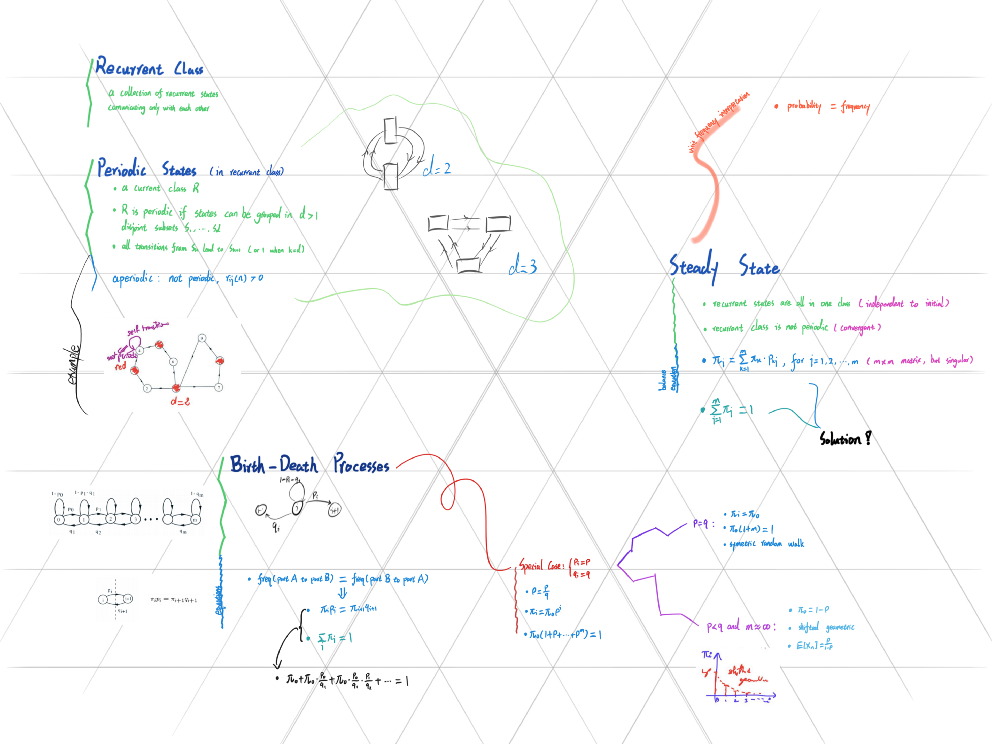 Recurrent Class
a collection of recurrent states
comunicating only with each other
Periodic States (in recurrent class)
• a current class R
• R is periodic if states can be grouped in d>1
disjoint subsets S₁,…,Sd
• all transitions from Sk lead to Sk+1 (or 1 when k=d)
aperiodic: not periodic, rij(n) > 0
example
self transition
red
d=2
d=2
d=3
visit frequency interpretation
• probability = frequency
Steady State
• recurrent states are all in one class (independent to initial)
• recurrent class is not periodic (convergent)
balance
equation
• πj = Σ πk·Pkj, for j=1,2,…,m (m×m matrix, but singular)
k=1
m
• Σ πj = 1
j=1
Solution?
Birth-Death Processes
1-Pi-qi
Pi
qi
i
i+1
1-p0
1-p1-q1
1-qm
p0
p1
q1
q2
qm
0
1
2
3
m
• freq(part A to part B) = freq(part B to part A)
⇓
• πiPi = πi+1qi+1
• Σ πi = 1
i
• π0+π0·P0/q1+π0·P0/q1·P1/q2+⋯=1
pi
i
i+1
qi+1
πipi = πi+1qi+1
Special Case: { Pi=P
qi=q
• ρ=P/q
• πi=π0ρ^i
• π0(1+ρ+⋯+ρ^m)=1
P=q:
• πi=π0
• π0(1+m)=1
• symetric random walk
P<q and m≈∞:
• π0=1-ρ
• shifted geometric
• E[Xn]=ρ/1-ρ
πi
shifted
geometric
0 1 2 3